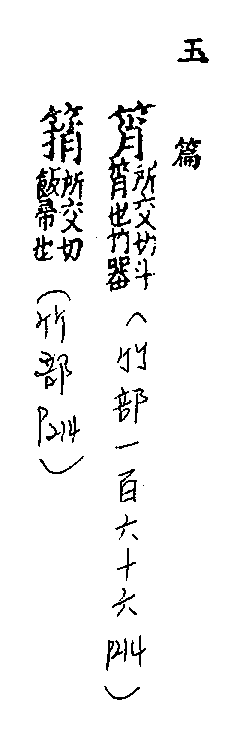 玉篇
筲所交切斗筲也竹器(竹部一百六十六P214)
䈰所交切飯帚也(竹部P214)